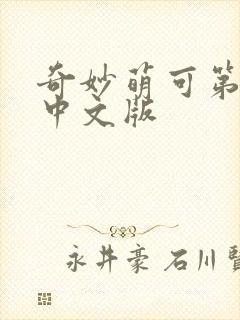 奇妙萌可第
中文版
永井豪 石川賢